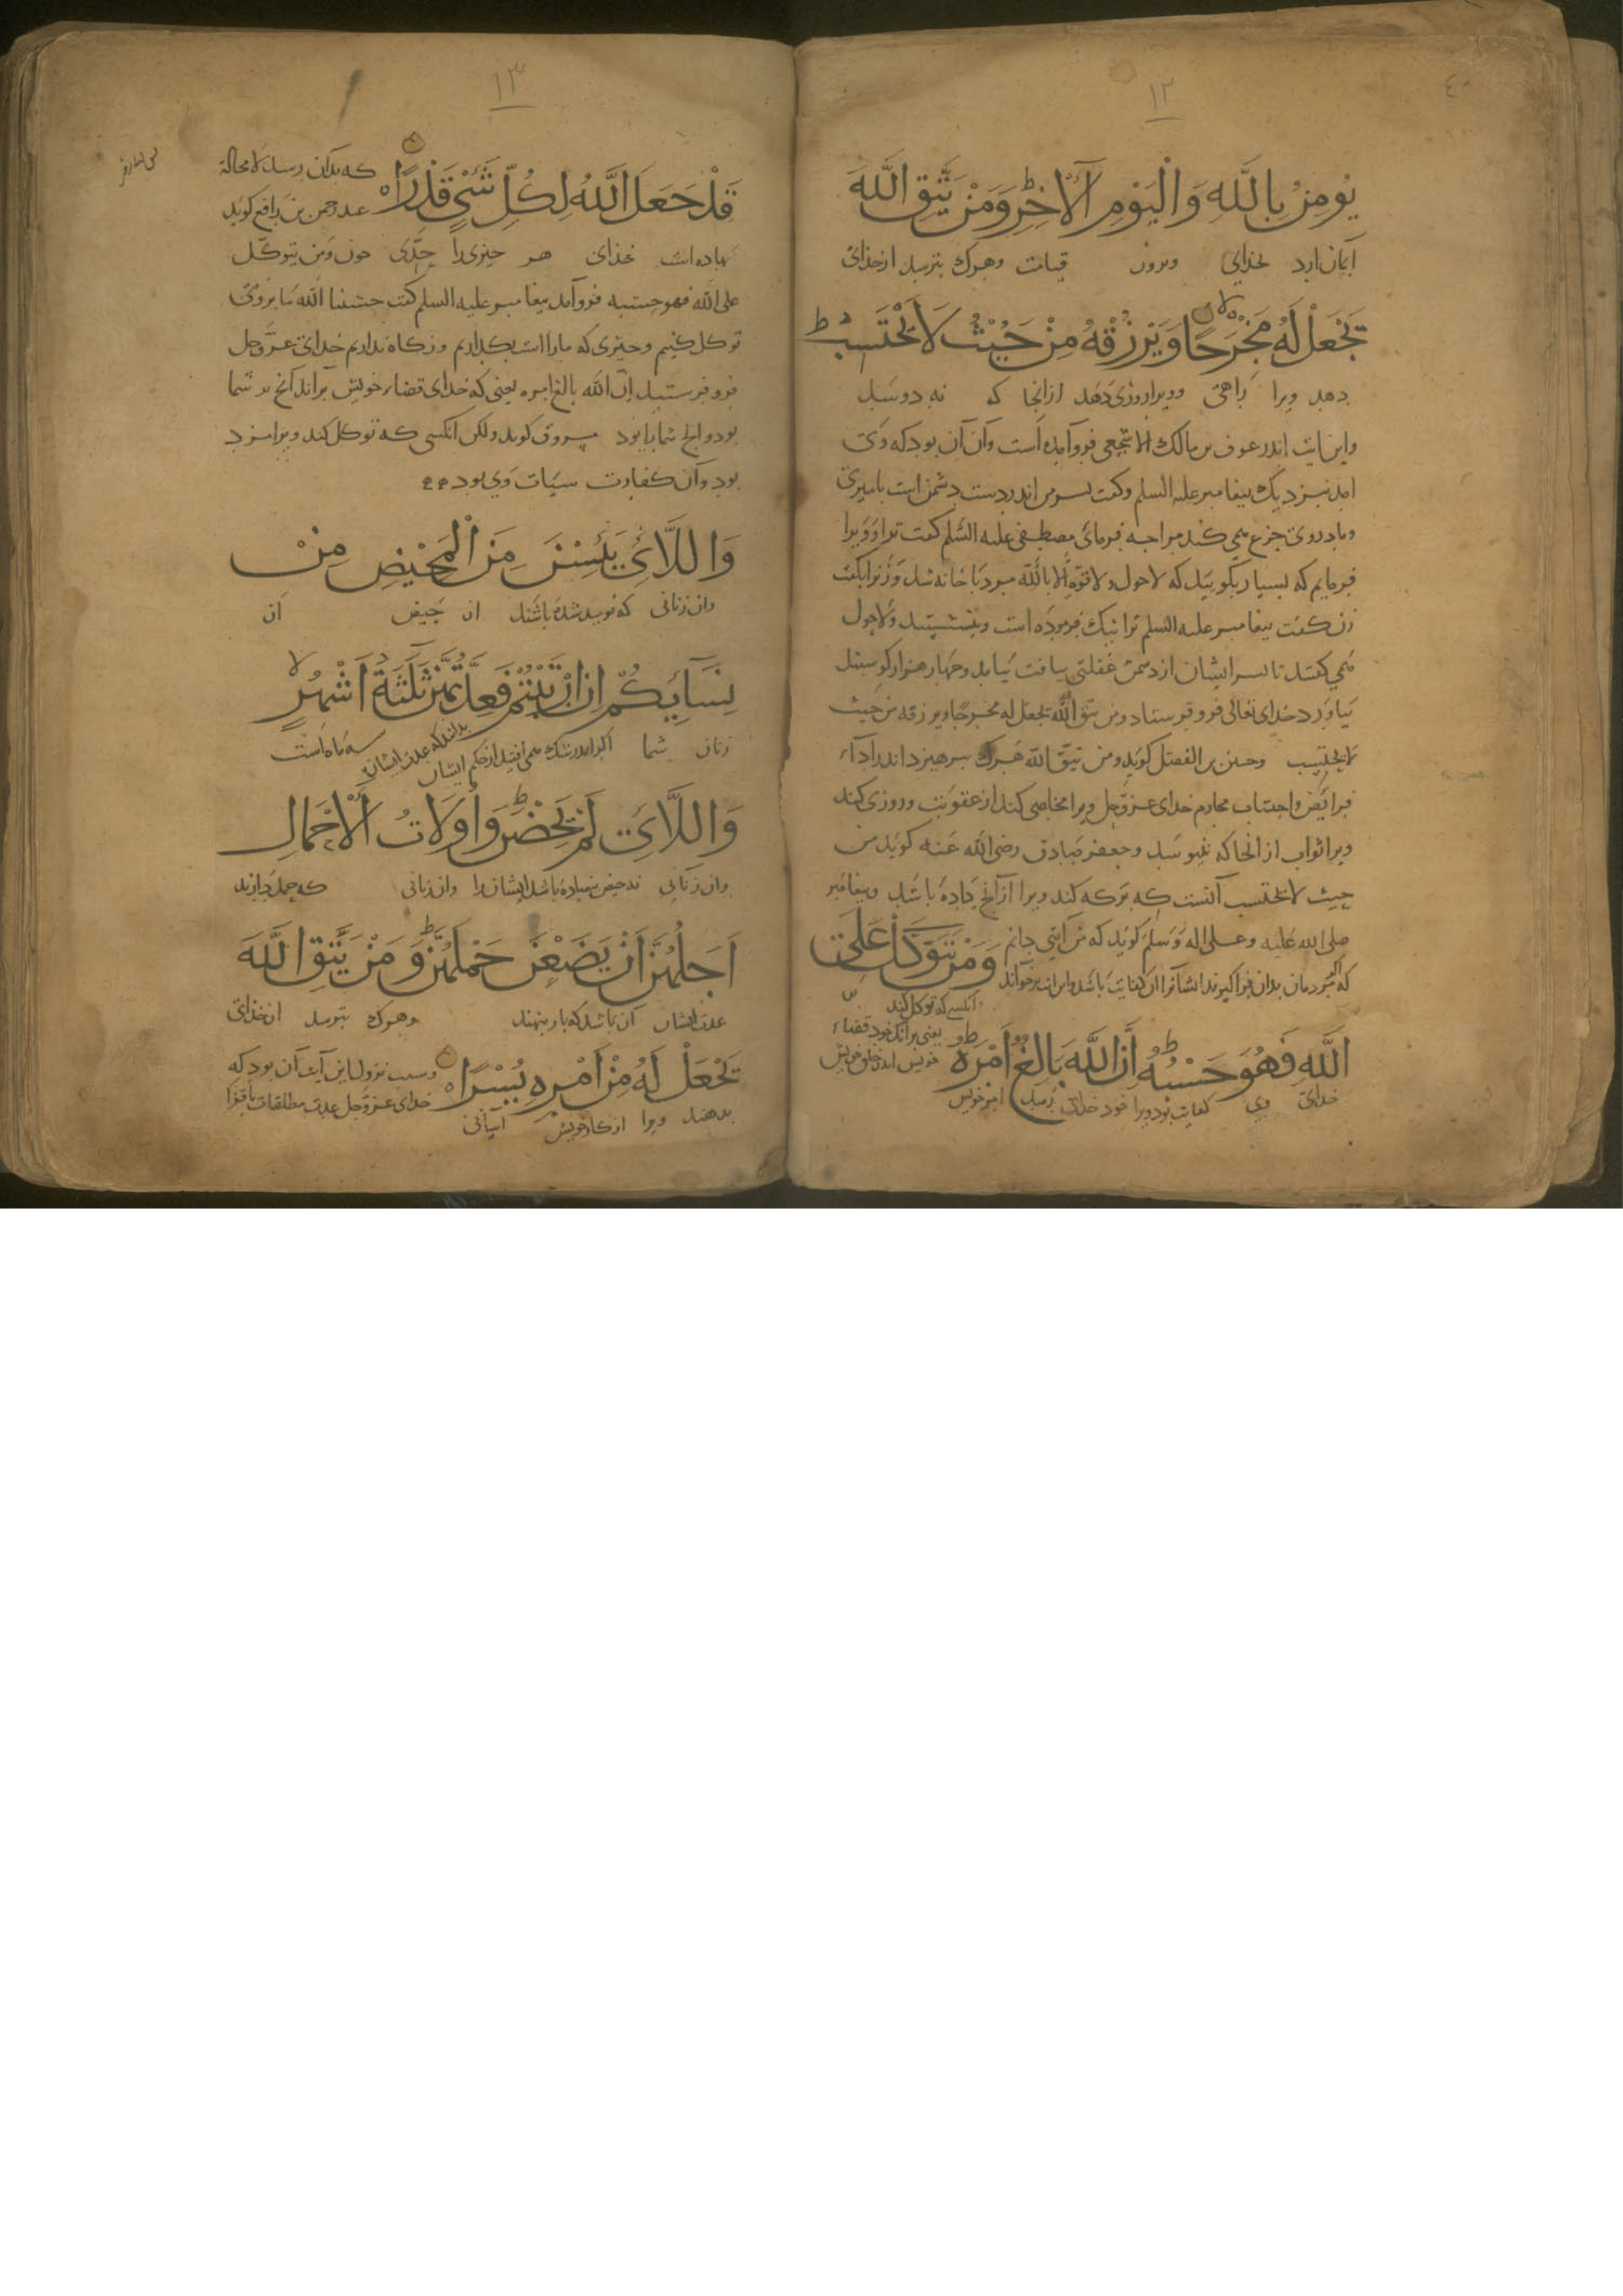 ٤٠
١٢
يُومِنُ بِاللَّهِ وَالْيَوْمِ الْآخِرِ وَمَنْ يَتَّقِ اللَّهَ
ایمان ارد بخدای وبروز قیامت وهرک بترسد از خدای
يَجْعَلْ لَهُ مَخْرَجًا وَيَرْزُقْهُ مِنْ حَيْثُ لَا يَحْتَسِبُ
دهد ویرا راهی وویرا روزی دهد از انجا که نه
واین ایت اندر عوف بن مالک الاشجعی فروآمده است وآن آن بود که وی
امد نزدیک بیغامبر علیه السلم وکفت بسر من اندر دست دشمن است باسیری
ومادر وی جزع همی کند مرا جه فرمائی مصطفی علیه السلم کفت ترا وویرا
فرمایم که بسیار بکویید که لاحول ولا قوة الا بالله مرد با خانه شد وزنرا بکفت
زن کفت بیغامبر علیه السلم ترا نیک فرموده است وبنشستند ولاحول
همی کفتند تا بسر ایشان از دشمن غفلتی یافت بیامد وجهار هزار کوسبند
بیاورد خدای تعالی فرو فرستاد ومن یتق الله یجعل له مخرجا ویرزقه من حیث
لا یحتسب وحسن بن الفضل کوید ومن یتق الله هرک برهیزد اندر آداء
فرائض واجتناب محارم خدای عز وجل ویرا مخلصی کند از عقوبت وروزی کند
ویرا ثواب از انجا که نبیوسد وجعفر صادق رضی الله عنه کوید من
حیث لا یحتسب آنست که برکه کند ویرا ازانج داده باشد وبیغامبر
صلی الله علیه وعلی اله وسلم کوید که من آیتی دانم
که اکر مردمان بدان فرا کیرند ایشانرا آن کفایت باشد واین ایت برخواند
وَمَنْ يَتَوَكَّلْ عَلَى
وانکسی که توکل کند
اللَّهِ فَهُوَ حَسْبُهُ إِنَّ اللَّهَ بَالِغُ أَمْرِهِ
یعنی برانک خود قضاء
خویش اندر خلق خویش
خدای وی کفایت بود ویرا خود خدای رسد امر خویش
١٣
قَدْ جَعَلَ اللَّهُ لِكُلِّ شَيْءٍ قَدْرًا
که بدان رسد لا محالة
عبدرحمن بن رافع کوید
نهاده است خدای هر جیزی را حدّی جون ومن یتوکل
علی الله فهو حسبه فروآمد بیغامبر علیه السلم کفت حسبنا الله ما بروی
توکل کنیم وجیزی که مارا است بکذاریم ونکاه نداریم خدای عز وجل
فرو فرستید ان الله بالغ امره یعنی که خدای قضاء خویش براند آنج بر شما
بود وانج شما را بود مسروق کوید ولکن انکسی که توکل کند ویرا مزد
بود وآن کفارت سیّات وی بود
وَاللَّائِي يَئِسْنَ مِنَ الْمَحِيضِ مِنْ
وان زنانی که نومید شده باشند از حیض از
نِسَائِكُمْ إِنِ ارْتَبْتُمْ فَعِدَّتُهُنَّ ثَلَثَةُ أَشْهُرٍ
زنان شما اکر اندر شک همی افتید از حکم ایشان بدانید که عدت ایشان سه ماه است
وَاللَّائِي لَمْ يَحِضْنَ وَأُولَاتُ الْأَحْمَالِ
وان زنانی که حیض نیفتاده باشد ایشانرا وان زنانی که حمل دارند
أَجَلُهُنَّ أَنْ يَضَعْنَ حَمْلَهُنَّ وَمَنْ يَتَّقِ اللَّهَ
عدت ایشان آن باشد که بار بنهند وهرک بترسد از خدای
يَجْعَلْ لَهُ مِنْ أَمْرِهِ يُسْرًا
وسبب نزول این آیت آن بود که
خدای عز وجل عدت مطلقات باقرا
بدهند ویرا از کار خویش آسانی